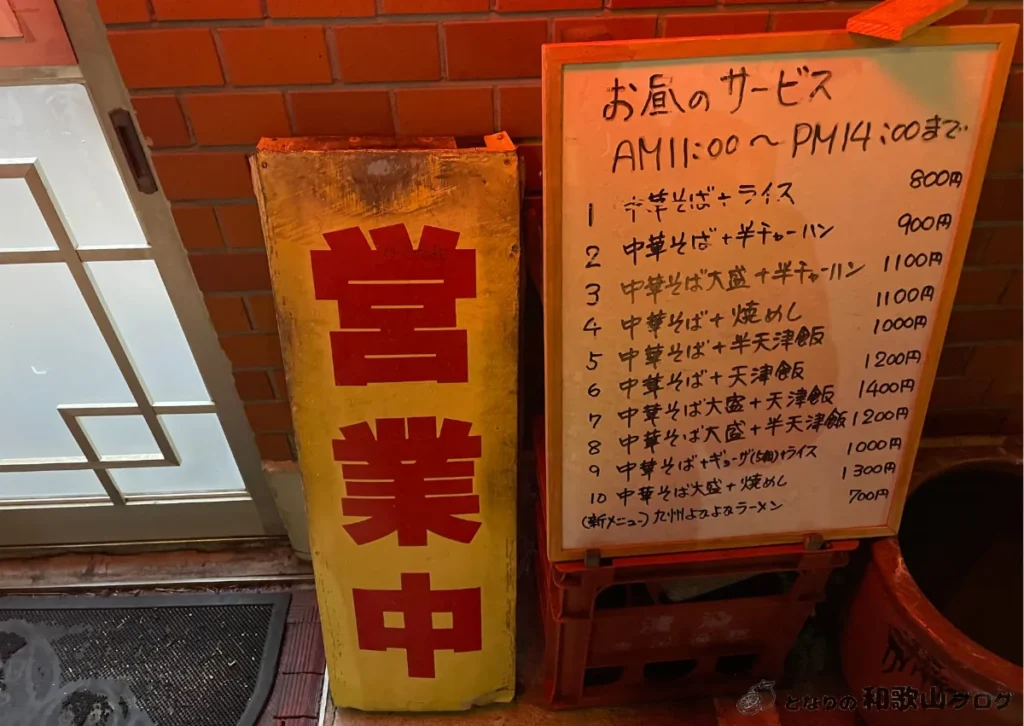 営業中
お昼のサービス
AM11:00〜PM14:00まで
1 中華そば+ライス 800円
2 中華そば+半チャーハン 900円
3 中華そば大盛+半チャーハン 1100円
4 中華そば+焼めし 1100円
5 中華そば+半天津飯 1000円
6 中華そば+天津飯 1200円
7 中華そば大盛+天津飯 1400円
8 中華そば大盛+半天津飯 1200円
9 中華そば+ギョーザ(5個)+ライス 1000円
10 中華そば大盛+焼めし 1300円
(新メニュー) 九州よかよかラーメン 700円
となりの和歌山ブログ